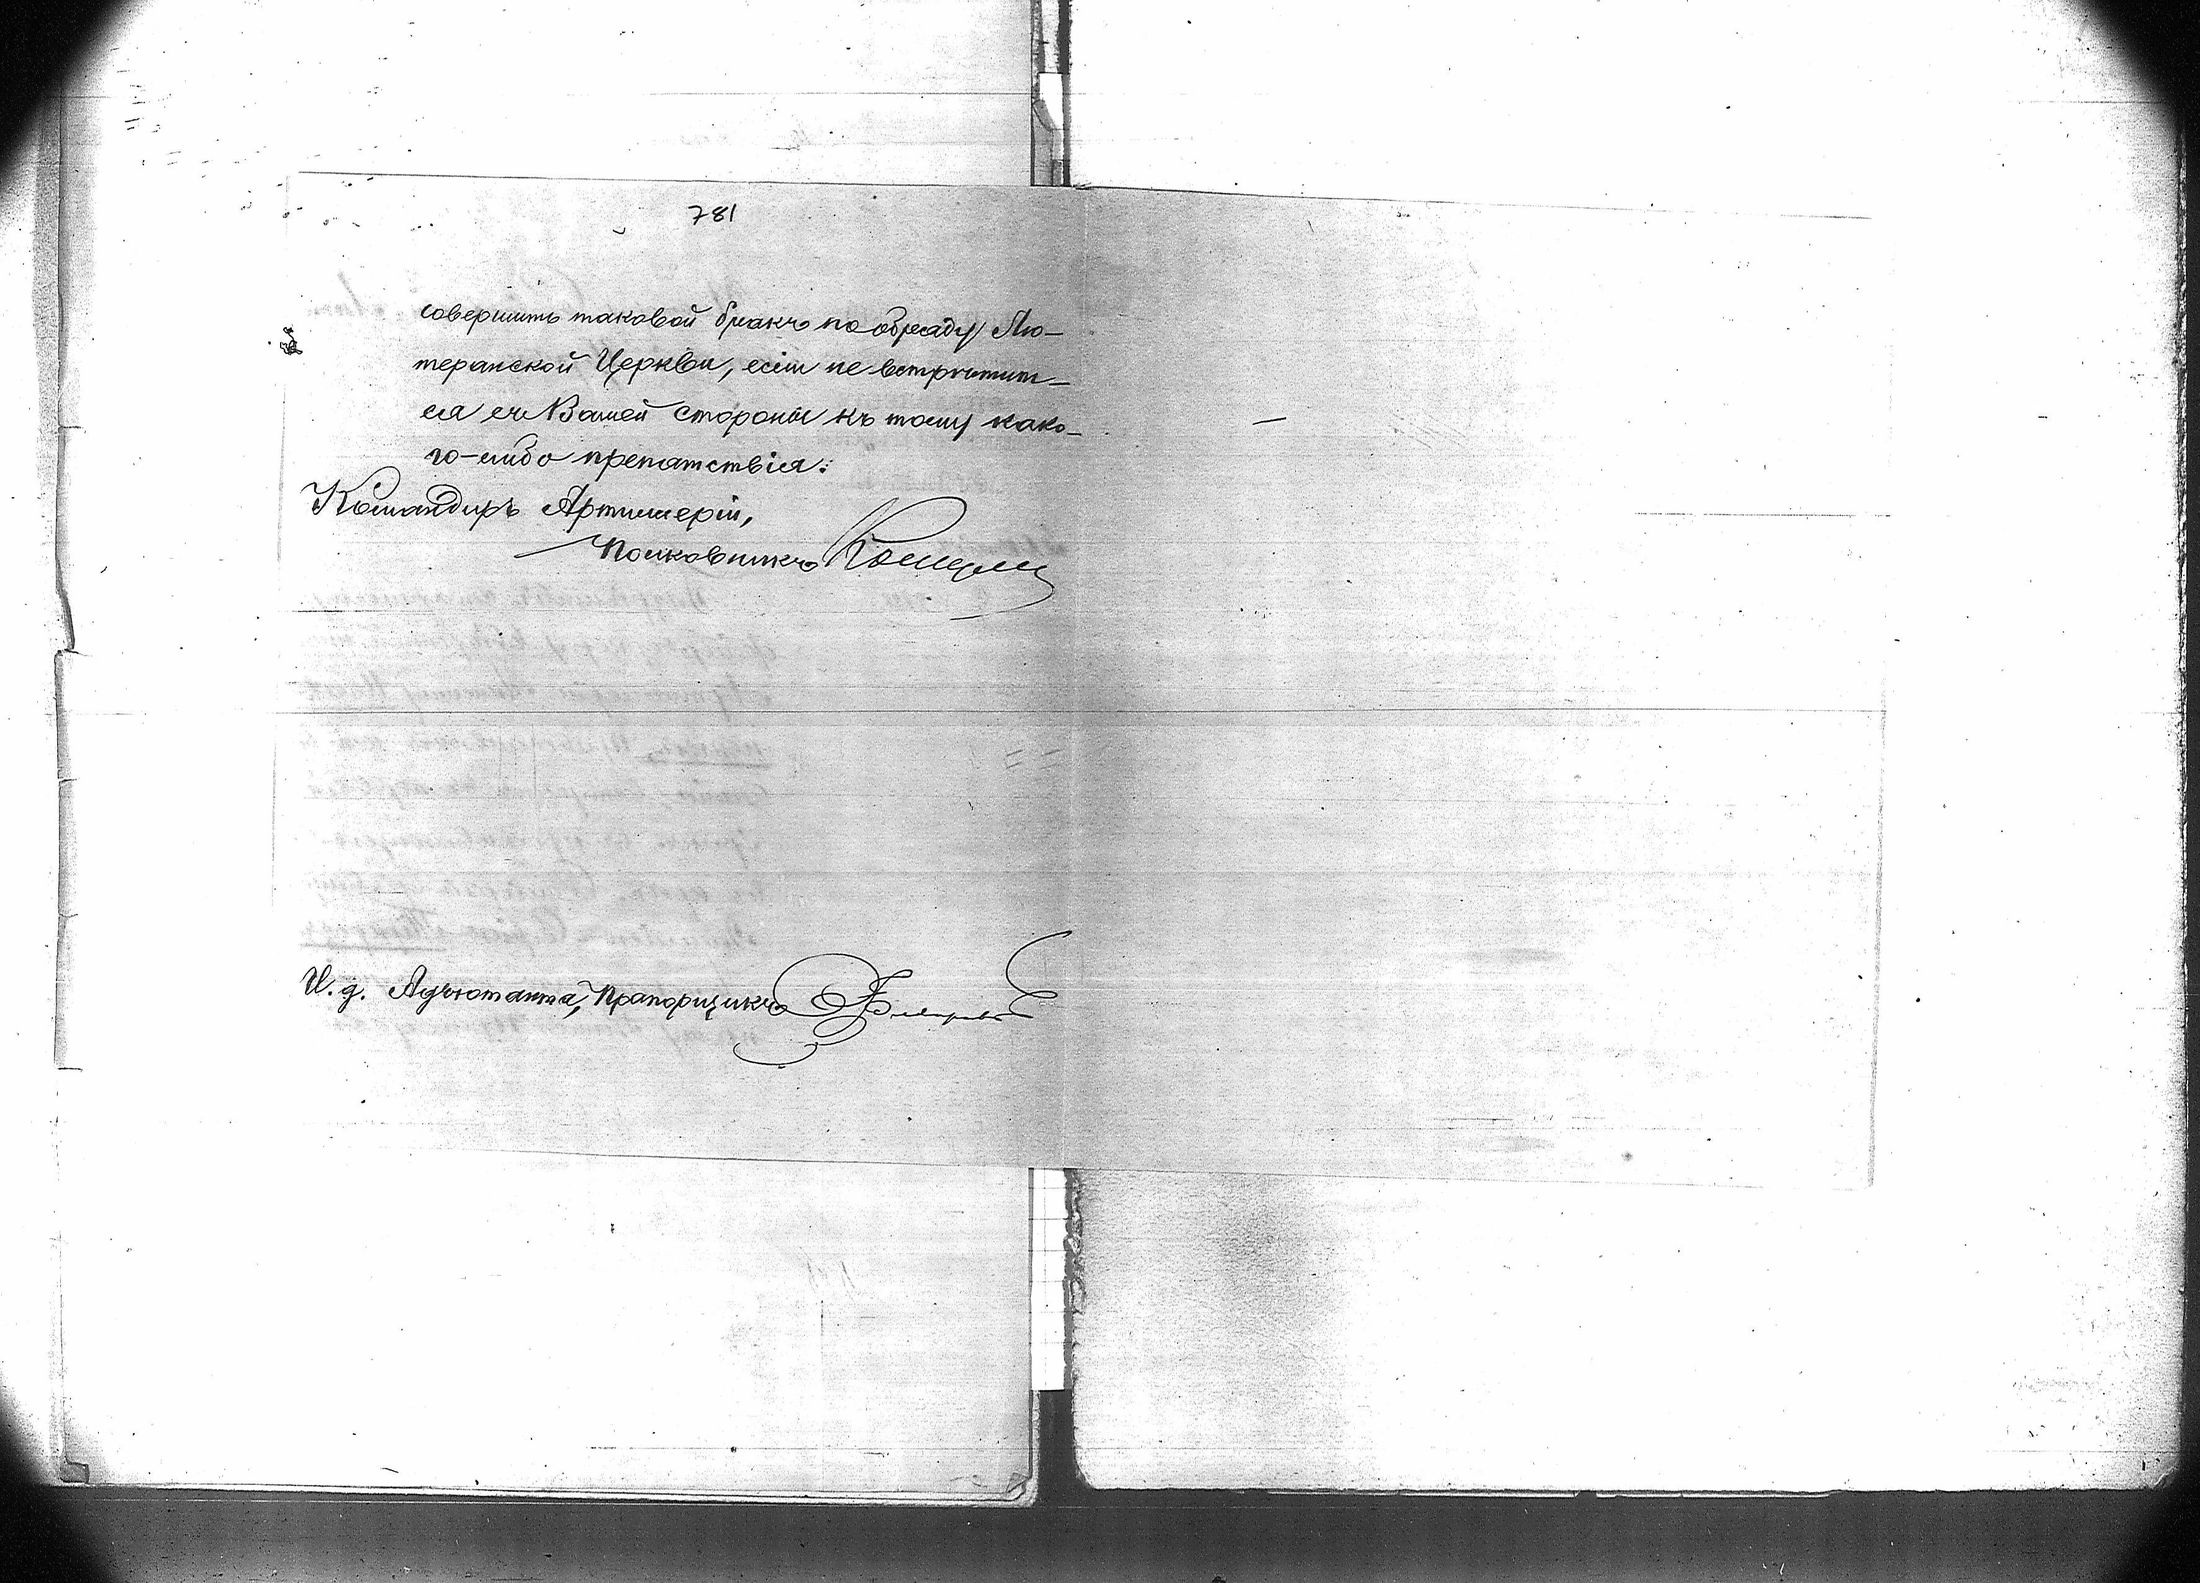 781
совершить таковой бракъ по обряду Лю-
теранской Церкви, если не встрѣтит-
ся съ Вашей стороны къ тому како-
го-либо препятствія.
Командиръ Артиллеріи,
Полковникъ
И. д. Адъютанта, Прапорщикъ